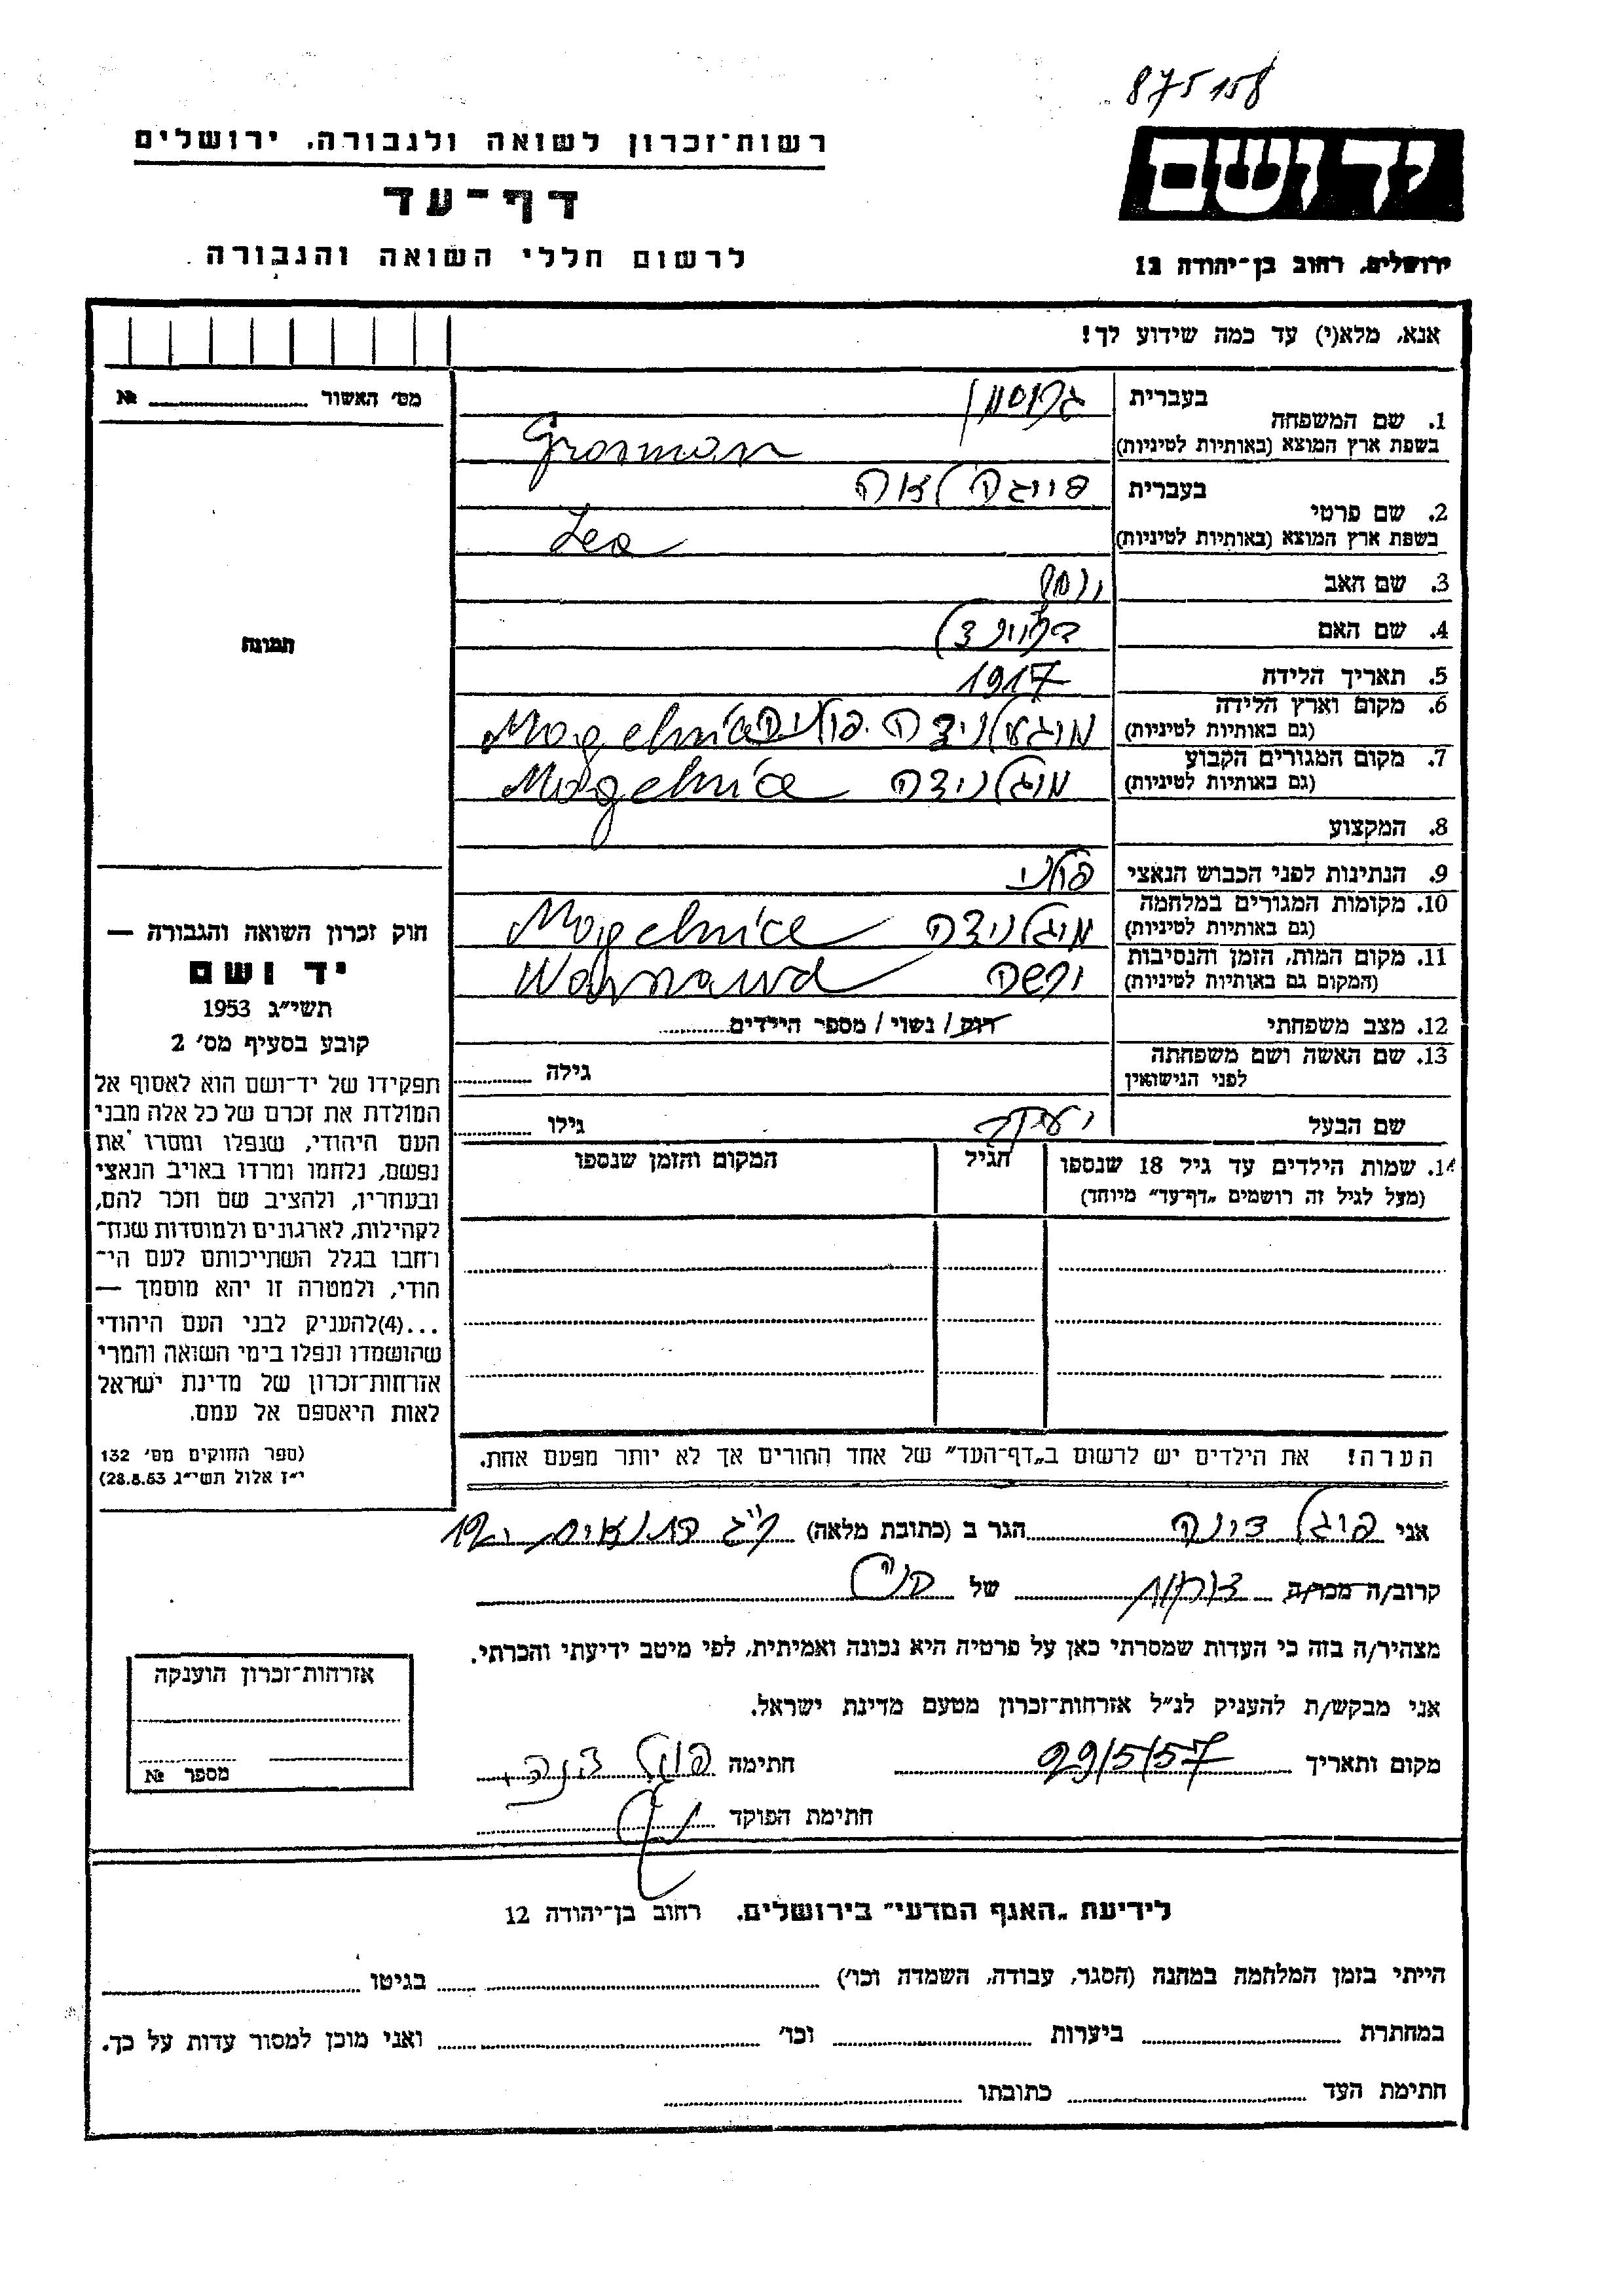 875158
רשות־זכרון לשואה ולגבורה, ירושלים
יד ושם
דף־עד
לרשום חללי השואה והגבורה
ירושלים, רחוב בן־יהודה 12
אנא, מלא(י) עד כמה שידוע לך!
מס׳ האשור № 
בעברית גרוסמן
1. שם המשפחה
בשפת ארץ המוצא (באותיות לטיניות) Grosman
בעברית פייגה לאה
2. שם פרטי
בשפת ארץ המוצא (באותיות לטיניות) Lea
3. שם האב
4. שם האם
תמונה
5. תאריך הלידה 1917
6. מקום וארץ הלידה מוגלניצה פולניה Mogelnice
(גם באותיות לטיניות)
7. מקום המגורים הקבוע מוגלניצה Mogelnice
(גם באותיות לטיניות)
8. המקצוע
9. הנתינות לפני הכבוש הנאצי פולני
10. מקומות המגורים במלחמה מוגלניצה Mogelnice
(גם באותיות לטיניות)
11. מקום המות, הזמן והנסיבות ורשה
(המקום גם באותיות לטיניות)
12. מצב משפחתי רוק / נשוי / מספר הילדים
13. שם האשה ושם משפחתה גילה
לפני הנישואין
שם הבעל יעקב גילו
14. שמות הילדים עד גיל 18 שנספו הגיל המקום והזמן שנספו
(מעל לגיל זה רושמים „דף־עד״ מיוחד)
חוק זכרון השואה והגבורה —
יד ושם
תשי״ג 1953
קובע בסעיף מס׳ 2
תפקידו של יד־ושם הוא לאסוף אל
המולדת את זכרם של כל אלה מבני
העם היהודי, שנפלו ומסרו את
נפשם, נלחמו ומרדו באויב הנאצי
ובעוזריו, ולהציב שם וזכר להם,
לקהילות, לארגונים ולמוסדות שנח־
רחבו בגלל השתייכותם לעם הי־
הודי, ולמטרה זו יהא מוסמך —
...(4) להעניק לבני העם היהודי
שהושמדו ונפלו בימי השואה והמרי
אזרחות־זכרון של מדינת ישראל
לאות היאספם אל עמם.
(ספר החוקים מס׳ 132
י״ז אלול תשי״ג 28.8.53)
הערה! את הילדים יש לרשום ב„דף־העד״ של אחד ההורים אך לא יותר מפעם אחת.
אני הגר ב (כתובת מלאה)
קרוב/ה מכר/ה של
מצהיר/ה בזה כי העדות שמסרתי כאן על פרטיה היא נכונה ואמיתית, לפי מיטב ידיעתי והכרתי.
אני מבקש/ת להעניק לנ״ל אזרחות־זכרון מטעם מדינת ישראל.
אזרחות־זכרון הוענקה
מספר №
מקום ותאריך 29/5/57 חתימה
חתימת הפוקד
לידיעת „האגף המדעי״ בירושלים, רחוב בן־יהודה 12
הייתי בזמן המלחמה במחנה (הסגר, עבודה, השמדה וכו׳) בגיטו
במחתרת ביערות וכו׳ ואני מוכן למסור עדות על כך.
חתימת העד כתובתו